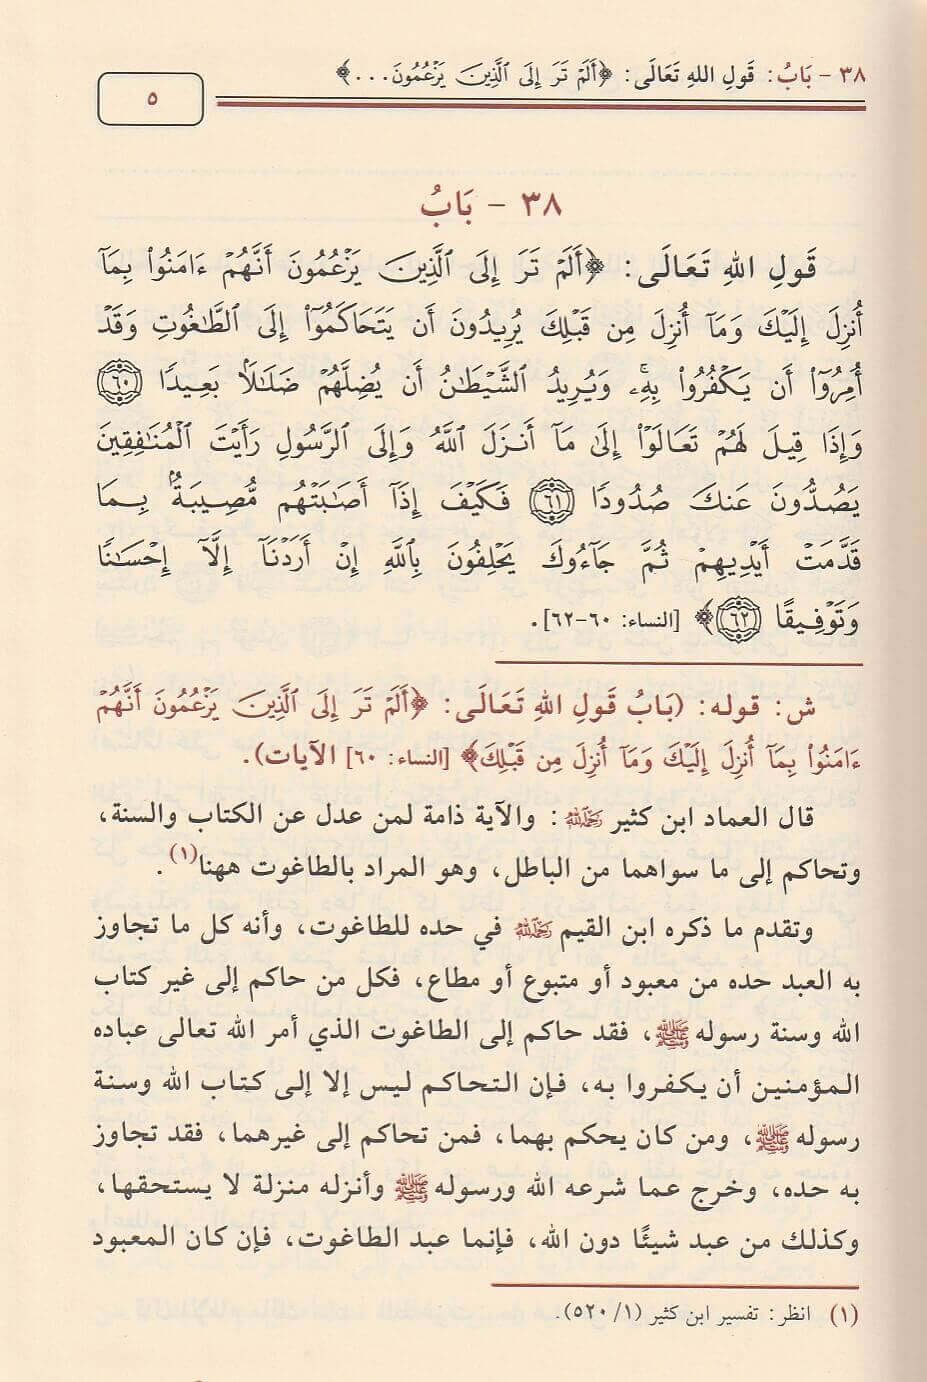 ٣٨ - بَابُ: قَولِ اللهِ تَعَالَى: ﴿أَلَمْ تَرَ إِلَى ٱلَّذِينَ يَزْعُمُونَ...﴾
٥
٣٨ - بَابُ
قَولِ اللهِ تَعَالَى: ﴿أَلَمْ تَرَ إِلَى ٱلَّذِينَ يَزْعُمُونَ أَنَّهُمْ ءَامَنُوا۟ بِمَآ
أُنزِلَ إِلَيْكَ وَمَآ أُنزِلَ مِن قَبْلِكَ يُرِيدُونَ أَن يَتَحَاكَمُوٓا۟ إِلَى ٱلطَّـٰغُوتِ وَقَدْ
أُمِرُوٓا۟ أَن يَكْفُرُوا۟ بِهِۦۖ وَيُرِيدُ ٱلشَّيْطَـٰنُ أَن يُضِلَّهُمْ ضَلَـٰلًۢا بَعِيدًا ٦٠
وَإِذَا قِيلَ لَهُمْ تَعَالَوْا۟ إِلَىٰ مَآ أَنزَلَ ٱللَّهُ وَإِلَى ٱلرَّسُولِ رَأَيْتَ ٱلْمُنَـٰفِقِينَ
يَصُدُّونَ عَنكَ صُدُودًا ٦١ فَكَيْفَ إِذَآ أَصَـٰبَتْهُم مُّصِيبَةٌۢ بِمَا
قَدَّمَتْ أَيْدِيهِمْ ثُمَّ جَآءُوكَ يَحْلِفُونَ بِٱللَّهِ إِنْ أَرَدْنَآ إِلَّآ إِحْسَـٰنًا
وَتَوْفِيقًا ٦٢﴾ [النساء: ٦٠-٦٢].
ش: قوله: (بَابُ قَولِ اللهِ تَعَالَى: ﴿أَلَمْ تَرَ إِلَى ٱلَّذِينَ يَزْعُمُونَ أَنَّهُمْ
ءَامَنُوا۟ بِمَآ أُنزِلَ إِلَيْكَ وَمَآ أُنزِلَ مِن قَبْلِكَ﴾ [النساء: ٦٠] الآيات).
قال العماد ابن كثير رَحِمَهُ اللهُ: والآية ذامة لمن عدل عن الكتاب والسنة،
وتحاكم إلى ما سواهما من الباطل، وهو المراد بالطاغوت ههنا(١).
وتقدم ما ذكره ابن القيم رَحِمَهُ اللهُ في حده للطاغوت، وأنه كل ما تجاوز
به العبد حده من معبود أو متبوع أو مطاع، فكل من حاكم إلى غير كتاب
الله وسنة رسوله ﷺ، فقد حاكم إلى الطاغوت الذي أمر الله تعالى عباده
المؤمنين أن يكفروا به، فإن التحاكم ليس إلا إلى كتاب الله وسنة
رسوله ﷺ، ومن كان يحكم بهما، فمن تحاكم إلى غيرهما، فقد تجاوز
به حده، وخرج عما شرعه الله ورسوله ﷺ وأنزله منزلة لا يستحقها،
وكذلك من عبد شيئًا دون الله، فإنما عبد الطاغوت، فإن كان المعبود
(١) انظر: تفسير ابن كثير (١/ ٥٢٠).